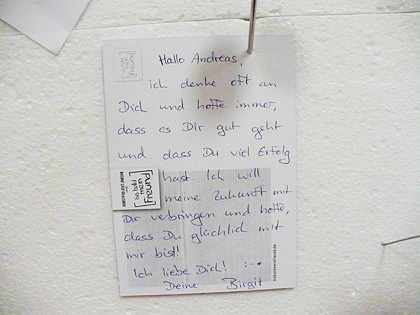 Hallo Andreas,
ich denke oft an
Dich und hoffe immer,
dass es Dir gut geht
und dass Du viel Erfolg
hast. Ich will
meine Zukunft mit
Dir verbringen und hoffe,
dass Du glücklich mit
mir bist!
Ich liebe Dich! :-*
Deine Birgit
bis bald
mein
freund